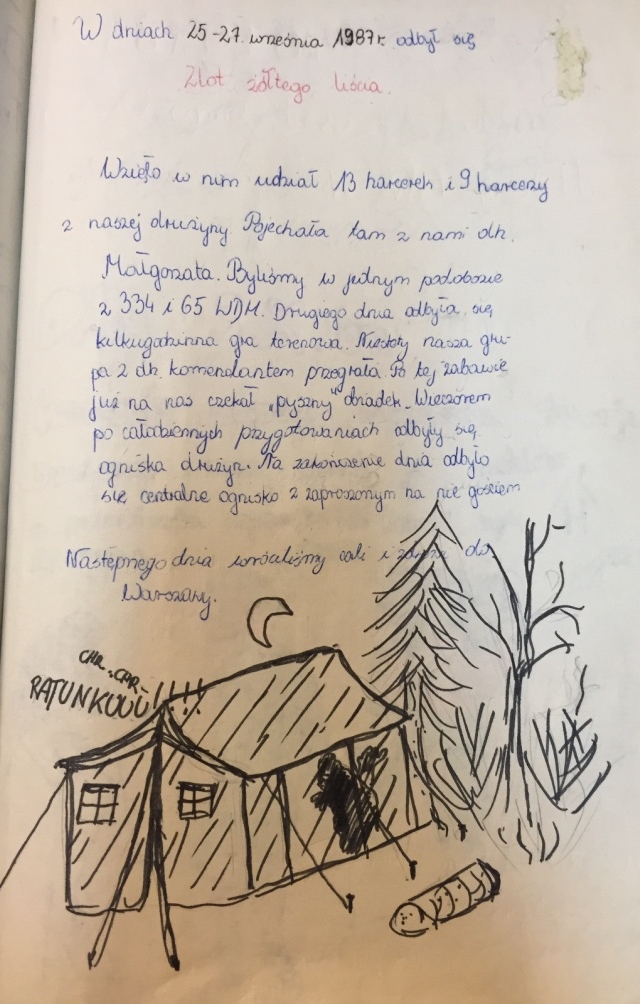 W dniach 25-27 września 1987r. odbył się
Zlot żółtego liścia.
Wzięło w nim udział 13 harcerek i 9 harcerzy
z naszej drużyny. Pojechała tam z nami dh.
Małgorzata. Byliśmy w jednym podobozie
z 334 i 65 WDH. Drugiego dnia odbyła się
kilkugodzinna gra terenowa. Niestety nasza gru-
pa z dh. komendantem przegrała. Po tej zabawie
już na nas czekał „pyszny" obiadek. Wieczorem
po całodziennych przygotowaniach odbyły się
ogniska drużyn. Na zakończenie dnia odbyło
się centralne ognisko z zaproszonym na nie gościem
Następnego dnia wróciliśmy cali i zdrowi do
Warszawy.
CHR.. CHR..
RATUNKUUU!!!!